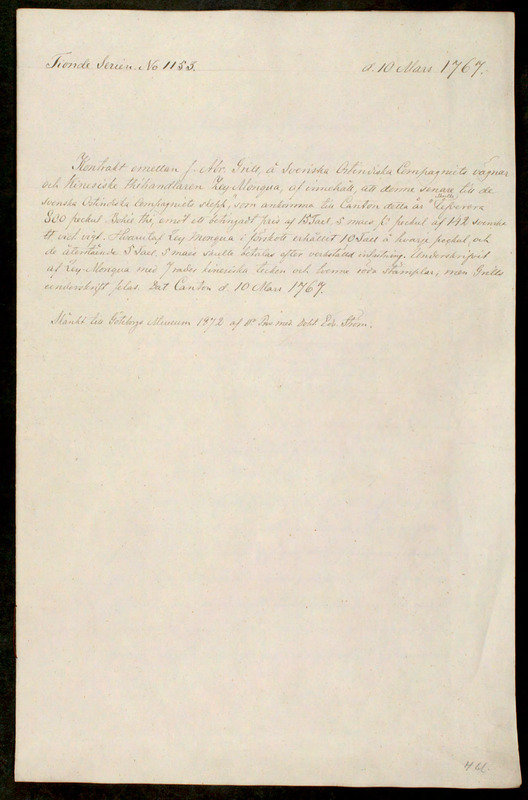 Tionde Serien No 1155.
d. 10 Mars 1767.
Kontrakt emellan J. Abr. Grill, å Svenska Ostindiska Compagniets vägnar
och Kinesiske théhandlaren Key Mongua, af innehåll, att denne senare till de
Svenska Ostindiska Compagniets skepp, som ankomma till Canton detta år skulle lefverera
300 peckul Bohé thé, emot ett betingadt pris af 15 Tael 5 maes pr peckul af 142 svenska
℔ vigt. Hvaruti af Key Mongua i förskott erhållit 10 Tael å hvarje peckul, och
de återstående 5 Tael, 5 maes skulle betalas efter verkställd inlastning. Underskrifvet
af Key-Mongua med 7 rader kinesiska tecken och tvenne röda stämplar, men Grills
underskrift felas. Dat Canton d. 10 Mars 1767.
Skänkt till Göteborgs Museum 1872 af Edv. Ström.
4 bl.